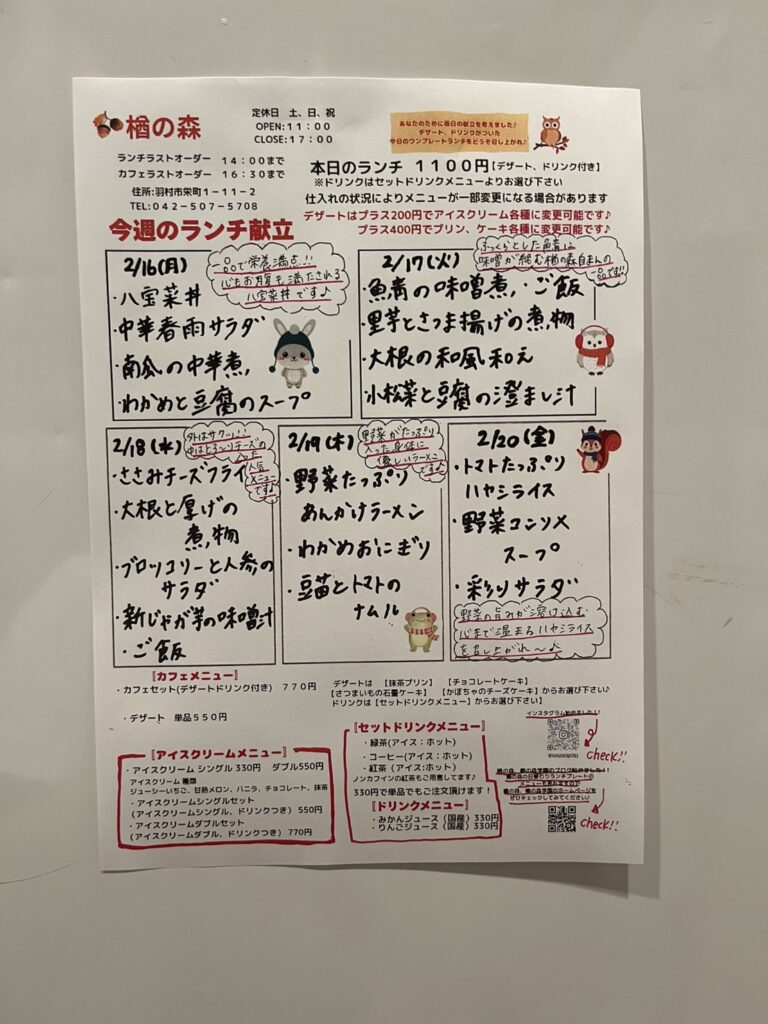 楢の森
定休日　土、日、祝
OPEN:11：00
CLOSE:17：00
あなたのために毎日の献立を考えました♪
デザート、ドリンクがついた
今日のワンプレートランチをどうぞ召し上がれ♪
ランチラストオーダー　14：00まで
カフェラストオーダー　16：30まで
住所:羽村市栄町1－11－2
TEL:042－507－5708
本日のランチ　1100円【デザート、ドリンク付き】
※ドリンクはセットドリンクメニューよりお選び下さい
仕入れの状況によりメニューが一部変更になる場合があります
デザートはプラス200円でアイスクリーム各種に変更可能です♪
プラス400円でプリン、ケーキ各種に変更可能です♪
今週のランチ献立
2/16(月)
一品で栄養満点!!
心もお腹も満たされる
八宝菜丼です♪
・八宝菜丼
・中華春雨サラダ
・南瓜の中華煮
・わかめと豆腐のスープ
2/17(火)
ふっくらとした魚青に
味噌が絡む楢の森自まんの
一品です!!
・魚青の味噌煮・ご飯
・里芋とさつま揚げの煮物
・大根の和風和え
・小松菜と豆腐の澄まし汁
2/18(水)
外はサクッ!!
中はとろ〜りチーズの
入った
人気
メニュー
です♪
・ささみチーズフライ
・大根と厚げの
煮物
・ブロッコリーと人参の
サラダ
・新じゃが芋の味噌汁
・ご飯
2/19(木)
野菜がたっぷり
入った身体に
優しいラーメン
です♪
・野菜たっぷり
あんかけラーメン
・わかめおにぎり
・豆苗とトマトの
ナムル
2/20(金)
・トマトたっぷり
ハヤシライス
・野菜コンソメ
スープ
・彩りサラダ
野菜の旨みが溶け込む
心まで温まるハヤシライス
を召し上がれ〜♪
『カフェメニュー』
・カフェセット(デザートドリンク付き)　770円
デザートは　【抹茶プリン】　【チョコレートケーキ】
【さつまいもの石畳ケーキ】　【かぼちゃのチーズケーキ】からお選び下さい♪
ドリンクは【セットドリンクメニュー】からお選び下さい
・デザート　単品550円
『アイスクリームメニュー』
・アイスクリーム シングル 330円　ダブル550円
アイスクリーム 種類
ジューシーいちご、甘熟メロン、バニラ、チョコレート、抹茶
・アイスクリームシングルセット
(アイスクリームシングル、ドリンクつき)　550円
・アイスクリームダブルセット
(アイスクリームダブル、ドリンクつき)　770円
『セットドリンクメニュー』
・緑茶(アイス：ホット)
・コーヒー(アイス；ホット)
・紅茶（アイス:ホット)
ノンカフインの紅茶もご用意してます♪
330円で単品でもご注文頂けます！
『ドリンクメニュー』
・みかんジュース（国産）330円
・りんごジュース（国産）330円
インスタグラム始めました！！
check!!
check!!